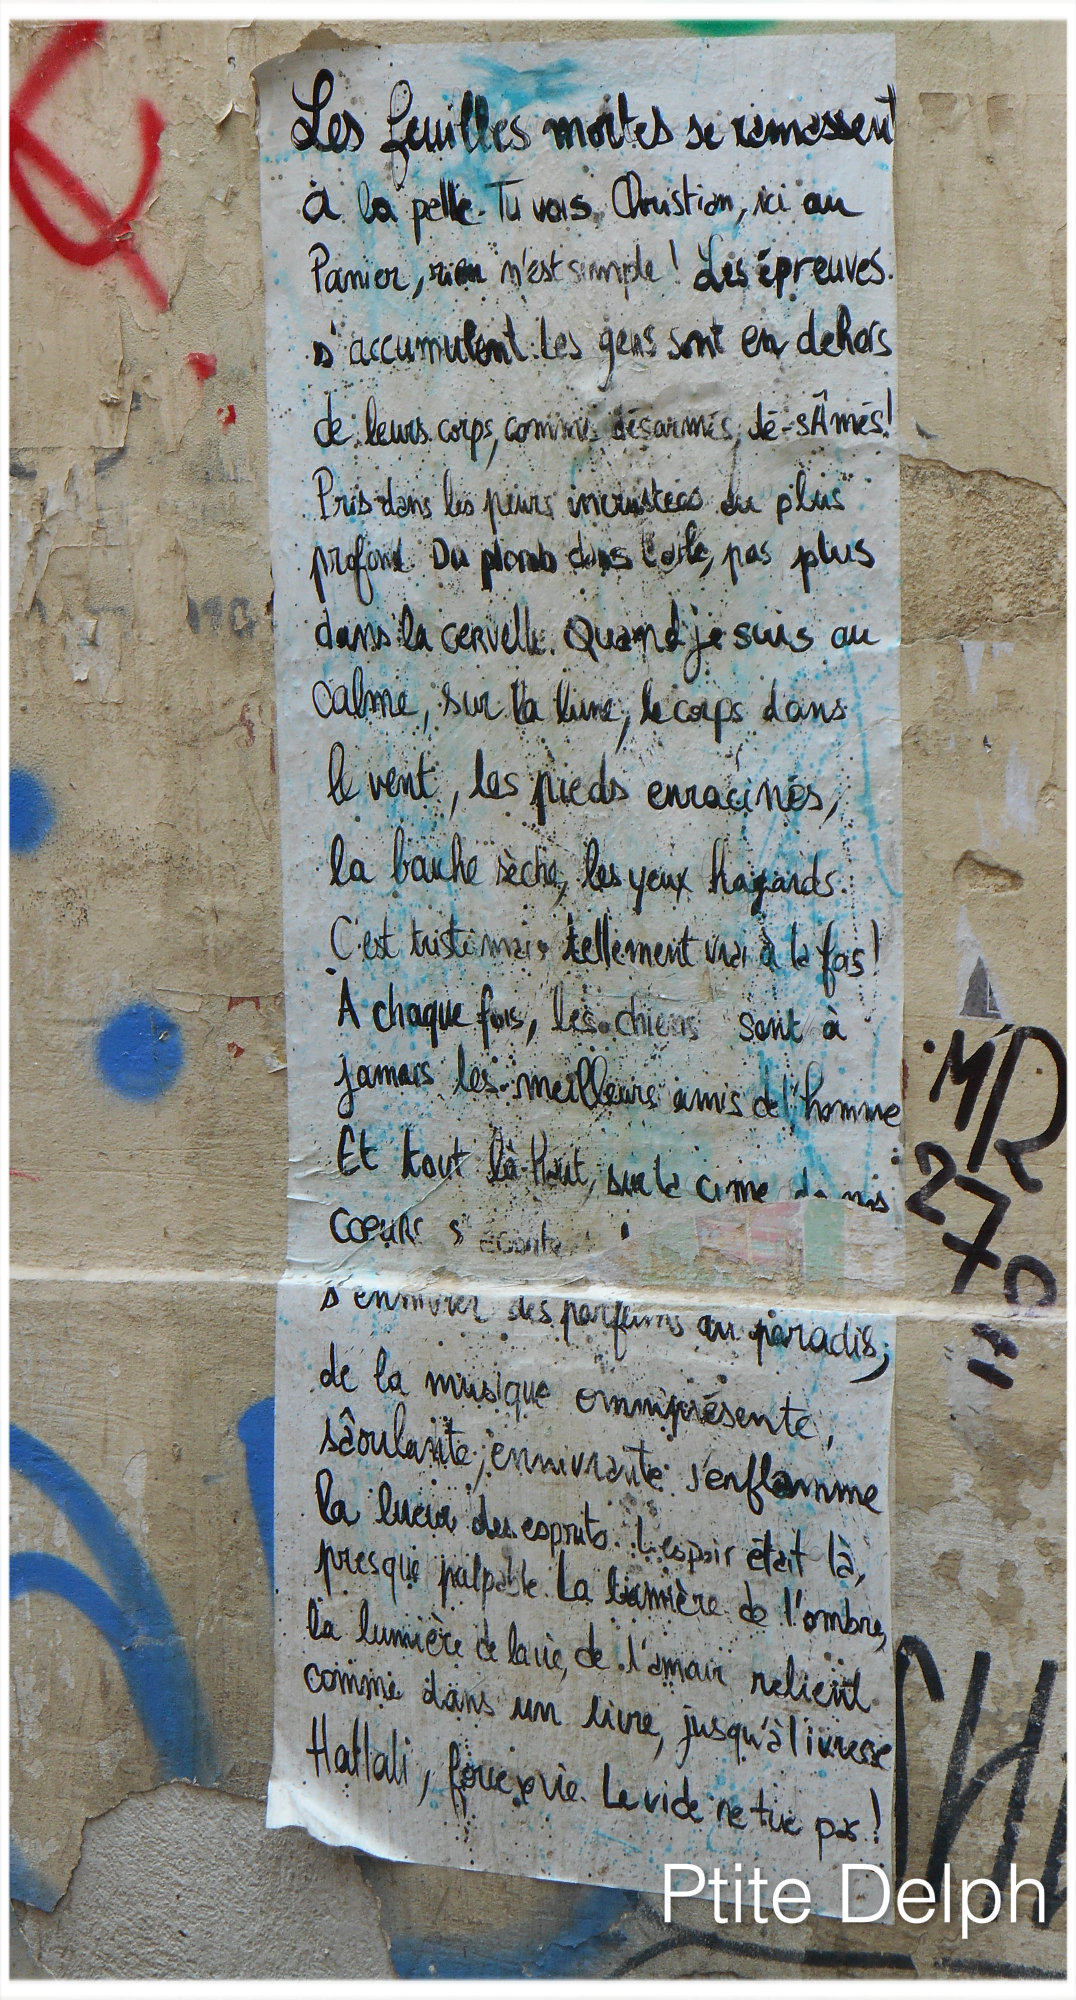 Les feuilles mortes se ramassent
à la pelle. Tu vois Christian, ici au
Panier, rien n'est simple ! Les épreuves
s'accumulent. Les gens sont en dehors
de leurs corps, comme désarmés, dé-sÂmés !
Pris dans les peurs incrustées au plus
profond. Du plomb dans l'aile, pas plus
dans la cervelle. Quand je suis au
Calme, sur la lune, le corps dans
le vent, les pieds enracinés,
la bouche sèche, les yeux hagards.
C'est triste mais tellement vrai à la fois !
A chaque fois, les chiens sont à
jamais les meilleurs amis de l'homme
Et tout là-Haut, sur la cime de nos
COEURS s'
s'ennivrer des parfums au paradis,
de la musique omniprésente,
sâoulante, ennivrante s'enflamme
la lueur des esprits. L'espoir était là,
presque palpable. La lumière de l'ombre,
la lumière de la vie, de l'amour relient
comme dans un livre, jusqu'à l'ivresse
Hatlali, force e vie. Le vide ne tue pas !
MR
270
Ptite Delph